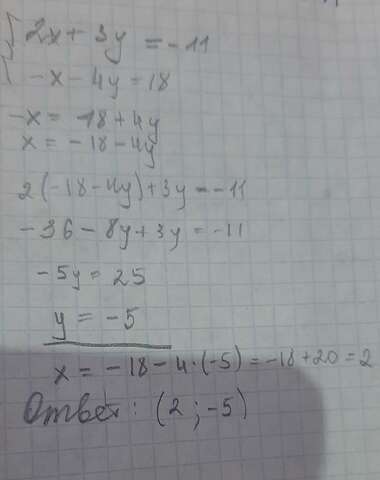 2x + 3y = -11
-x - 4y = 18
-x = 18 + 4y
x = -18 - 4y
2(-18 - 4y) + 3y = -11
-36 - 8y + 3y = -11
-5y = 25
y = -5
x = -18 - 4·(-5) = -18 + 20 = 2
Ответ: (2 ; -5)